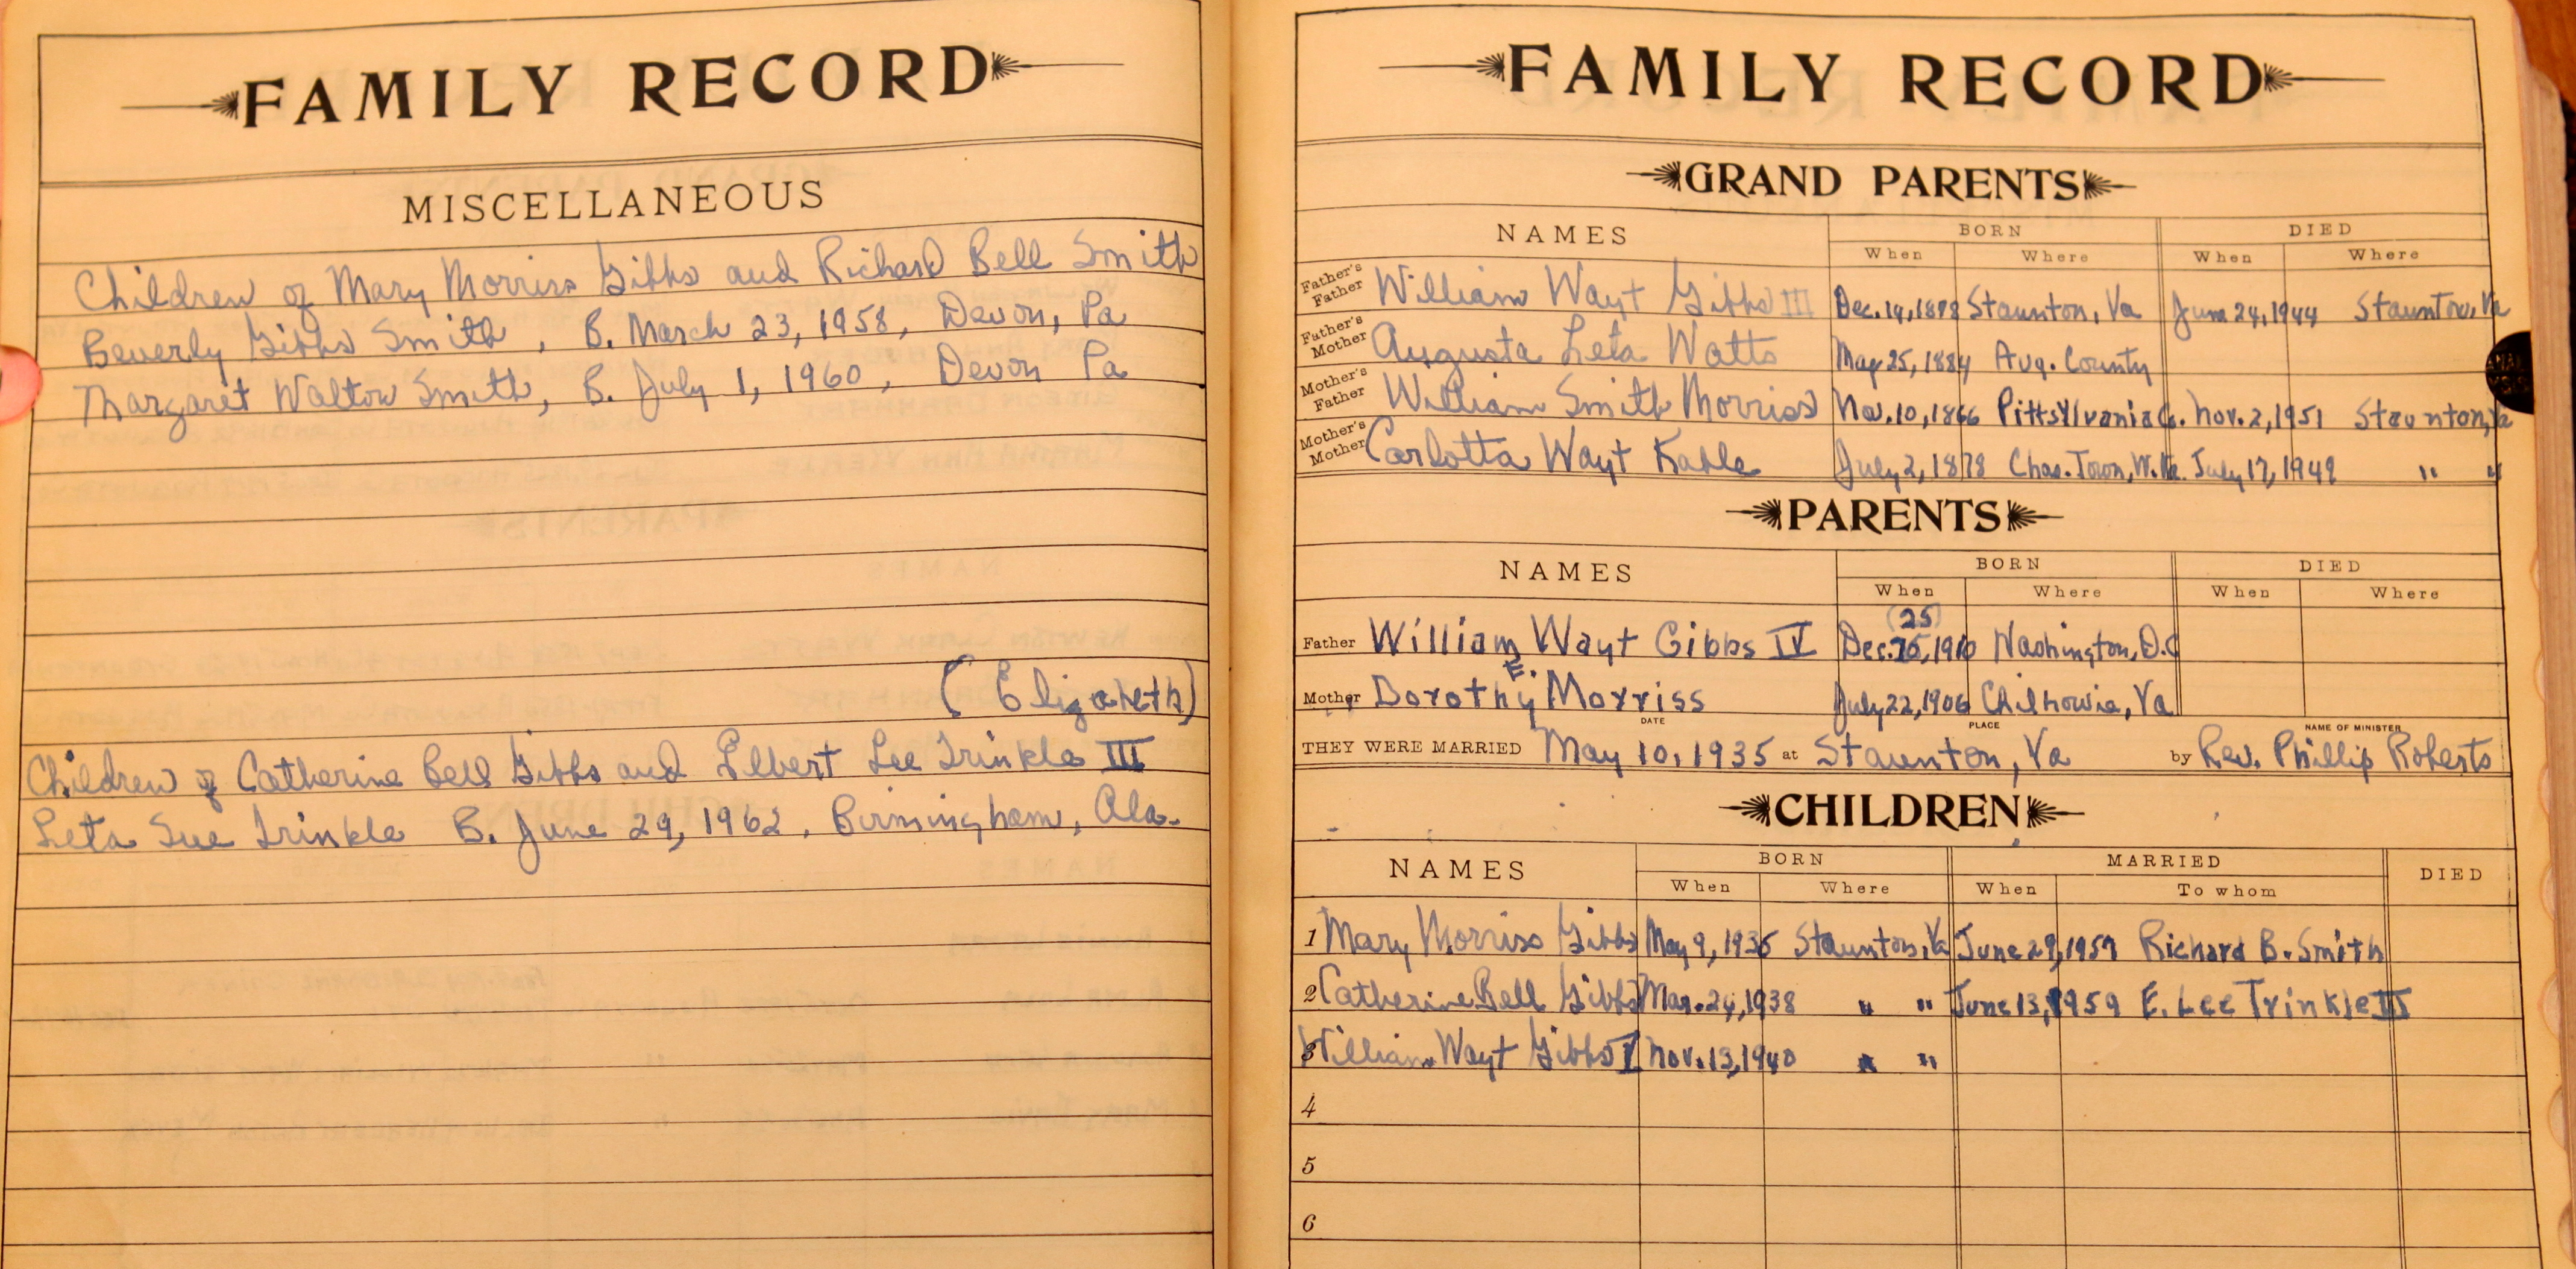 FAMILY RECORD
MISCELLANEOUS
Children of Mary Morriss Gibbs and Richard Bell Smith
Beverly Gibbs Smith, B. March 23, 1958, Devon, Pa
Margaret Walton Smith, B. July 1, 1960, Devon Pa
(Elizabeth)
Children of Catherine Bell Gibbs and Elbert Lee Trinkle III
Leta Sue Trinkle B. June 29, 1962, Birmingham, Ala.
FAMILY RECORD
GRAND PARENTS
NAMES BORN DIED
When Where When Where
Father's Father William Wayt Gibbs III Dec. 14, 1878 Staunton, Va June 24, 1944 Staunton, Va
Father's Mother Augusta Leta Watts May 25, 1884 Aug. County
Mother's Father William Smith Morriss Nov. 10, 1866 Pittsylvania Co. Nov. 2, 1951 Staunton, Va
Mother's Mother Carlotta Wayt Kable July 2, 1878 Chas. Town, W. Va. July 17, 1949 " "
PARENTS
NAMES BORN DIED
When Where When Where
(25)
Father William Wayt Gibbs IV Dec. 1910 Washington, D.C
Mother Dorothy E. Morriss July 22, 1906 Chilhowie, Va
DATE PLACE NAME OF MINISTER
THEY WERE MARRIED May 10, 1935 at Staunton, Va by Rev. Phillip Roberts
CHILDREN
NAMES BORN MARRIED DIED
When Where When To whom
1 Mary Morriss Gibbs May 9, 1936 Staunton, Va June 29, 1957 Richard B. Smith
2 Catherine Bell Gibbs Mar. 24, 1938 " " June 13, 1959 E. Lee Trinkle III
3 William Wayt Gibbs V Nov. 13, 1940 " "
4
5
6